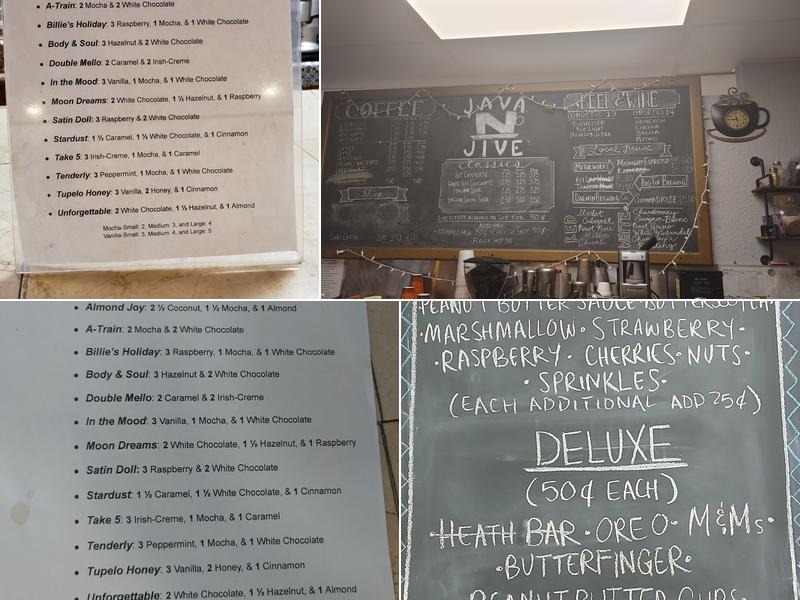 A-Train: 2 Mocha & 2 White Chocolate
Billie's Holiday: 3 Raspberry, 1 Mocha, & 1 White Chocolate
Body & Soul: 3 Hazelnut & 2 White Chocolate
Double Mello: 2 Caramel & 2 Irish-Creme
In the Mood: 3 Vanilla, 1 Mocha, & 1 White Chocolate
Moon Dreams: 2 White Chocolate, 1 ½ Hazelnut, & 1 Raspberry
Satin Doll: 3 Raspberry & 2 White Chocolate
Stardust: 1 ½ Caramel, 1 ½ White Chocolate, & 1 Cinnamon
Take 5: 3 Irish-Creme, 1 Mocha, & 1 Caramel
Tenderly: 3 Peppermint, 1 Mocha, & 1 White Chocolate
Tupelo Honey: 3 Vanilla, 2 Honey, & 1 Cinnamon
Unforgettable: 2 White Chocolate, 1 ½ Hazelnut, & 1 Almond
Mocha-Small: 2, Medium: 3, and Large: 4
Vanilla-Small: 3, Medium: 4, and Large: 5
COFFEE
JAVA
N
JIVE
Classics
Hot Chocolate
White Hot Chocolate
Italian Soda
Italian Cream Soda
Substitute Almond or Soy Milk 50¢
Flavor Shot 50
Chai Latte
BEER & WINE
Domestic
Imported
Budweiser
Bud Light
Michelob Ultra
Heineken
Corona
Stella
Local Brews
Motorworks
Midnight Espresso 5.00
Big Top Brewing
Darwin Brewing Co
Summadayze
Merlot
Cabernet
Pinot Noir
Chianti
WHITE
Chardonnay
Sauvignon Blanc
Pinot Grigio
White Zinfandel
Riesling
Almond Joy: 2 ½ Coconut, 1 ½ Mocha, & 1 Almond
A-Train: 2 Mocha & 2 White Chocolate
Billie's Holiday: 3 Raspberry, 1 Mocha, & 1 White Chocolate
Body & Soul: 3 Hazelnut & 2 White Chocolate
Double Mello: 2 Caramel & 2 Irish-Creme
In the Mood: 3 Vanilla, 1 Mocha, & 1 White Chocolate
Moon Dreams: 2 White Chocolate, 1 ½ Hazelnut, & 1 Raspberry
Satin Doll: 3 Raspberry & 2 White Chocolate
Stardust: 1 ½ Caramel, 1 ½ White Chocolate, & 1 Cinnamon
Take 5: 3 Irish-Creme, 1 Mocha, & 1 Caramel
Tenderly: 3 Peppermint, 1 Mocha, & 1 White Chocolate
Tupelo Honey: 3 Vanilla, 2 Honey, & 1 Cinnamon
Unforgettable: 2 White Chocolate, 1 ½ Hazelnut, & 1 Almond
PEANUT BUTTER SAUCE · BUTTERSCOTCH
·MARSHMALLOW · STRAWBERRY·
·RASPBERRY · CHERRIES · NUTS·
·SPRINKLES·
(EACH ADDITIONAL ADD 25¢)
DELUXE
(50¢ EACH)
·HEATH BAR · OREO · M&Ms·
·BUTTERFINGER·
PEANUT BUTTER CUPS·